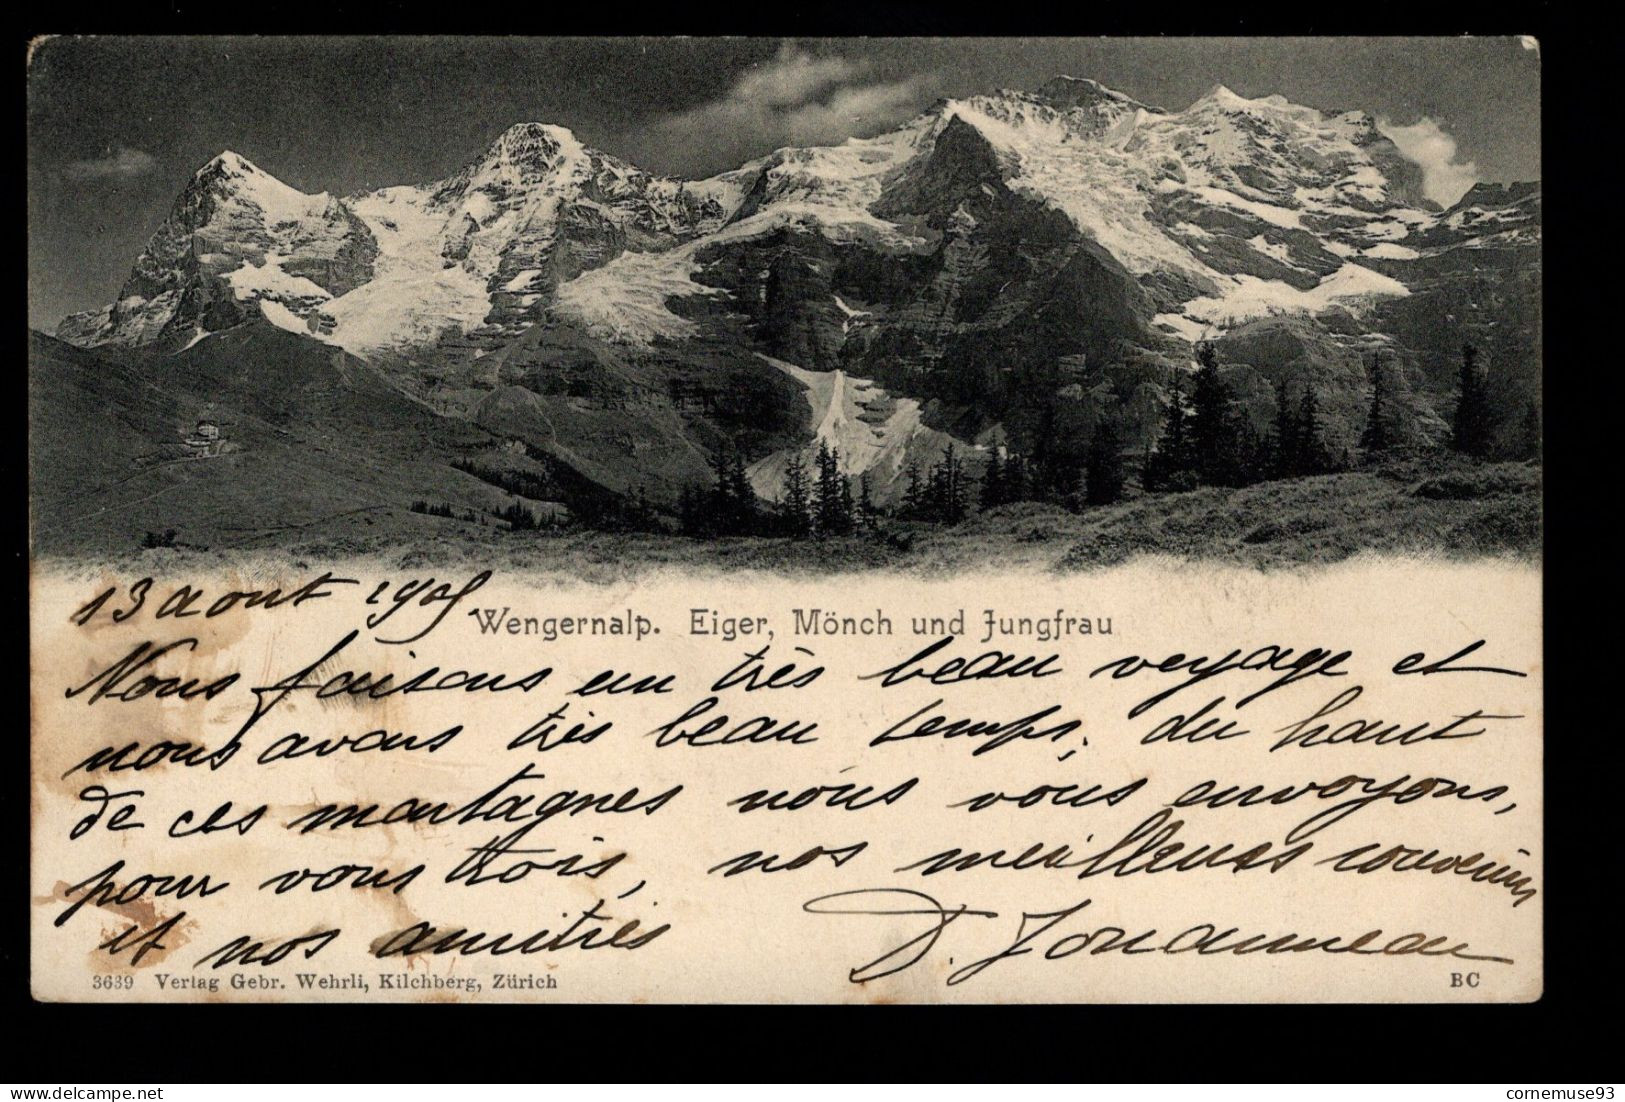 13 aout 1905
Wengernalp. Eiger, Mönch und Jungfrau
Nous faisons un très beau voyage et
nous avons très beau temps; du haut
de ces montagnes nous vous envoyons,
pour vous trois, nos meilleurs souvenirs
et nos amitiés D. Jouanneau
3639 Verlag Gebr. Wehrli, Kilchberg, Zürich BC
delcampe.net
cornemuse93